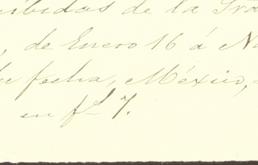 ibidas de la
, de Enero 16 á
fecha, México,
en fs. 7.